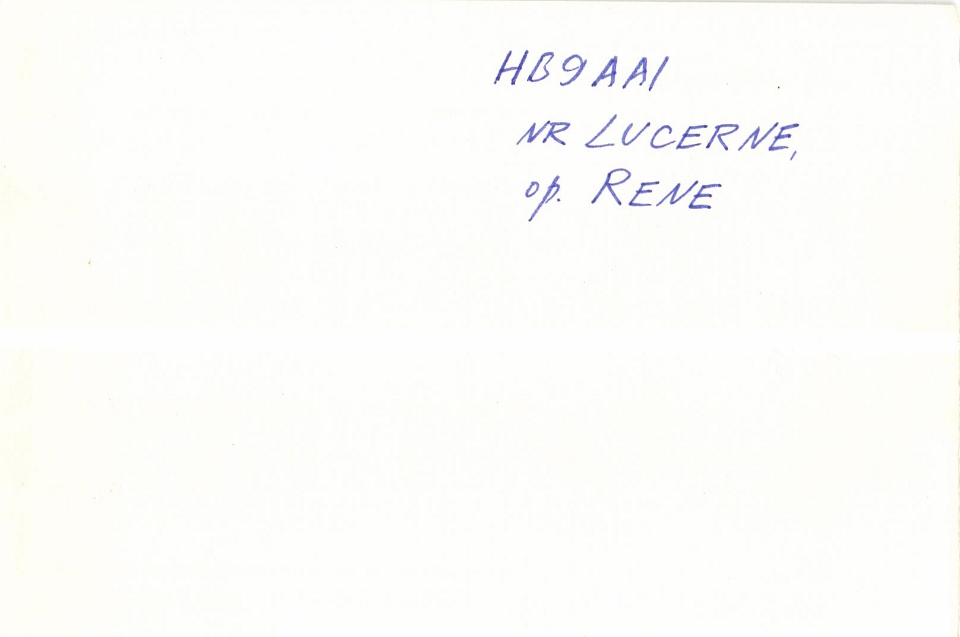 HB9AAI
NR LUCERNE,
op. RENE